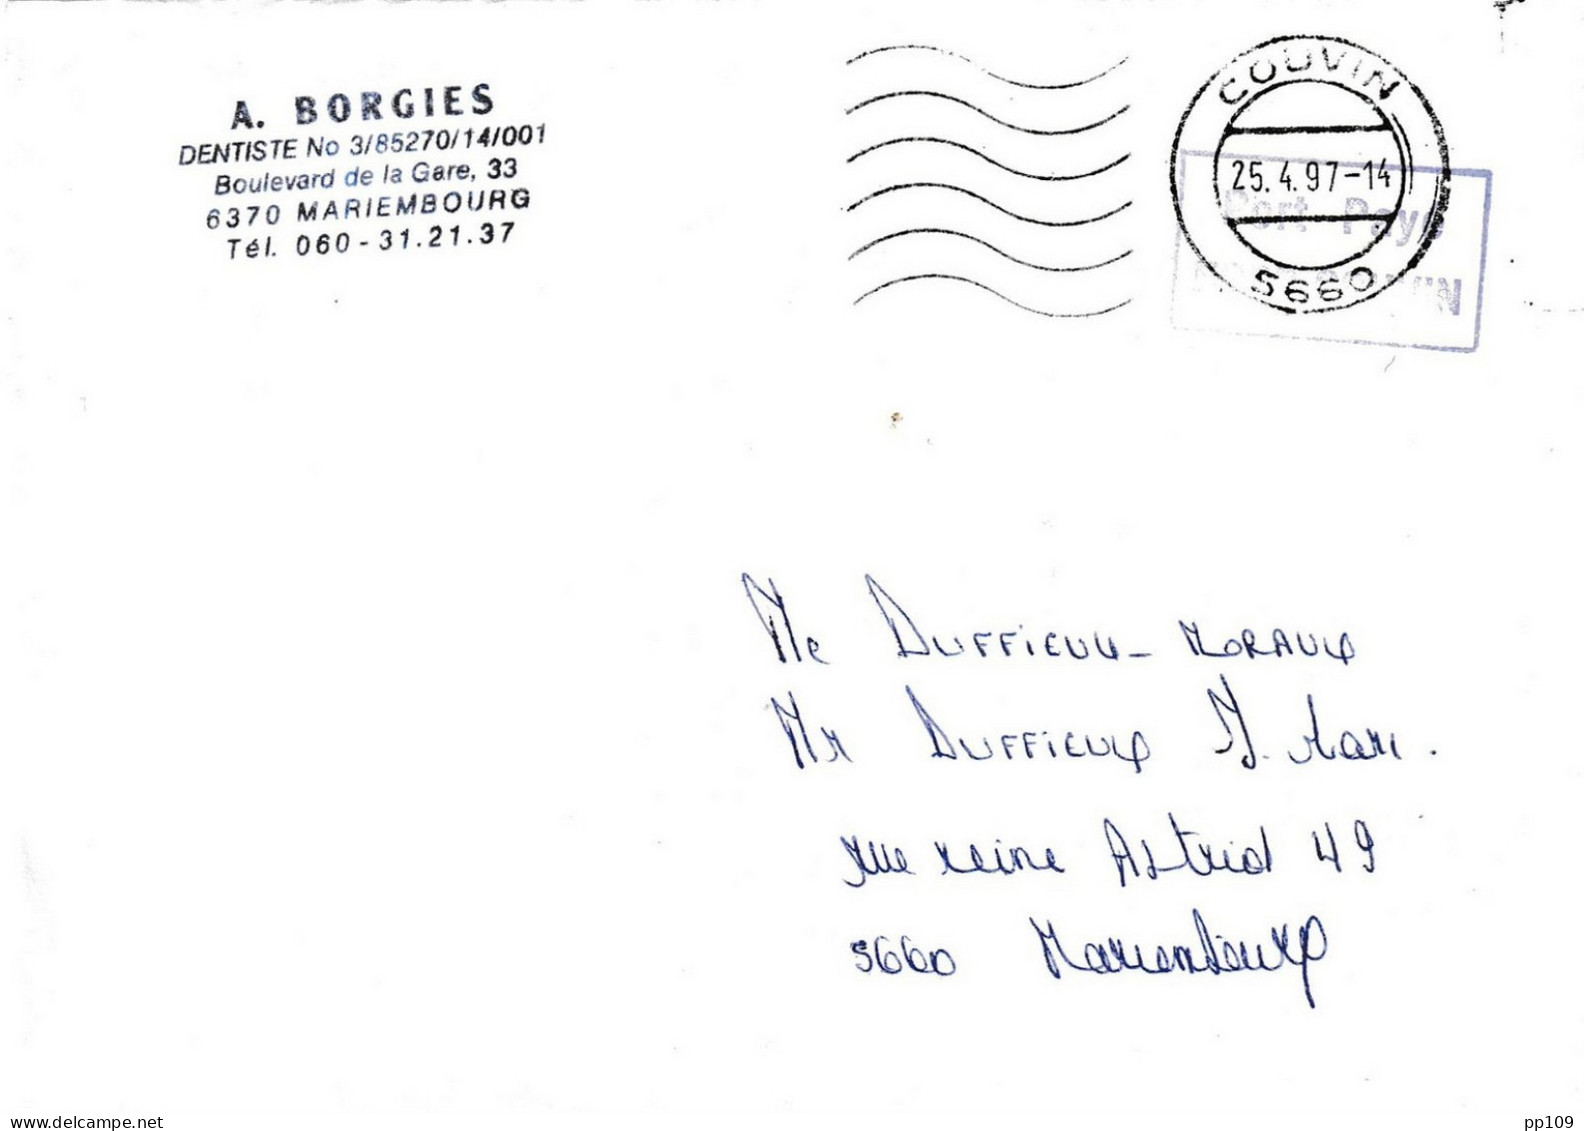 A. BORGIES
DENTISTE No 3/85270/14/001
Boulevard de la Gare, 33
6370 MARIEMBOURG
Tél. 060 - 31.21.37
COUVIN
25.4.97-14
5660
Port Payé
COUVIN
Me DUFFIEUX - MORAUX
Mr DUFFIEUX J. Mari .
rue reine Astrid 49
5660 Mariembourg
delcampe.net
pp109